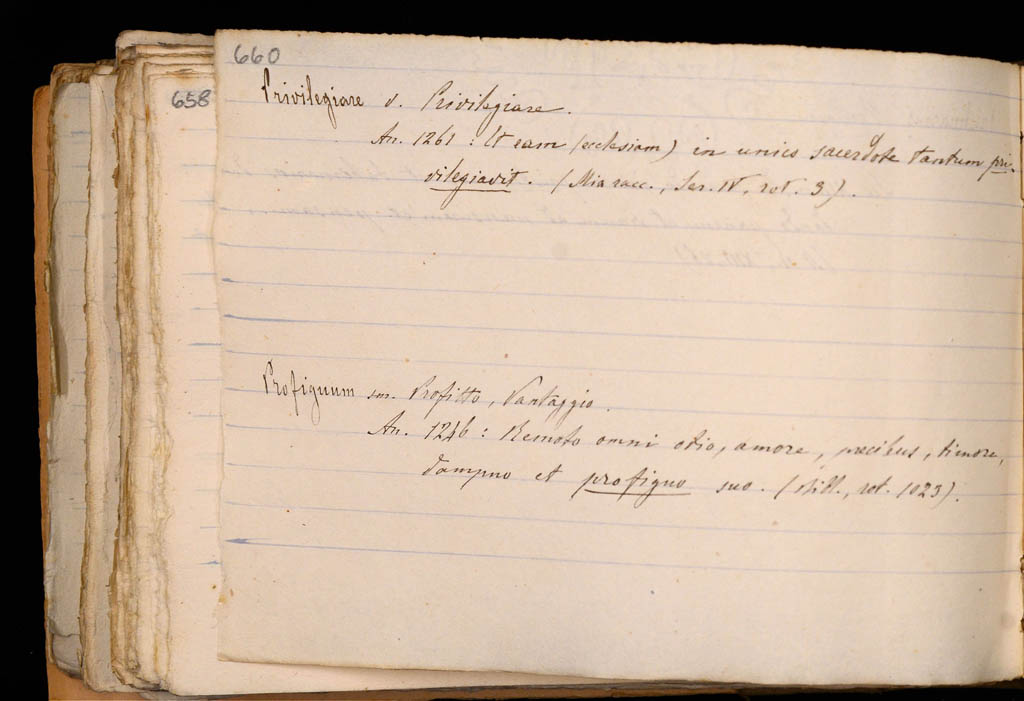 660
658
Privilegiare v. Privilegiare.
An. 1261 : Et eam (ecclesiam) in unico sacerdote tantum pri-
vilegiavit. (Mia racc., Ser. IV, rot. 3).
Profiguum sm. Profitto, Vantaggio.
An. 1246 : Remoto omni odio, amore, precibus, timore,
dampno et profiguo suo. (rot. 1023).